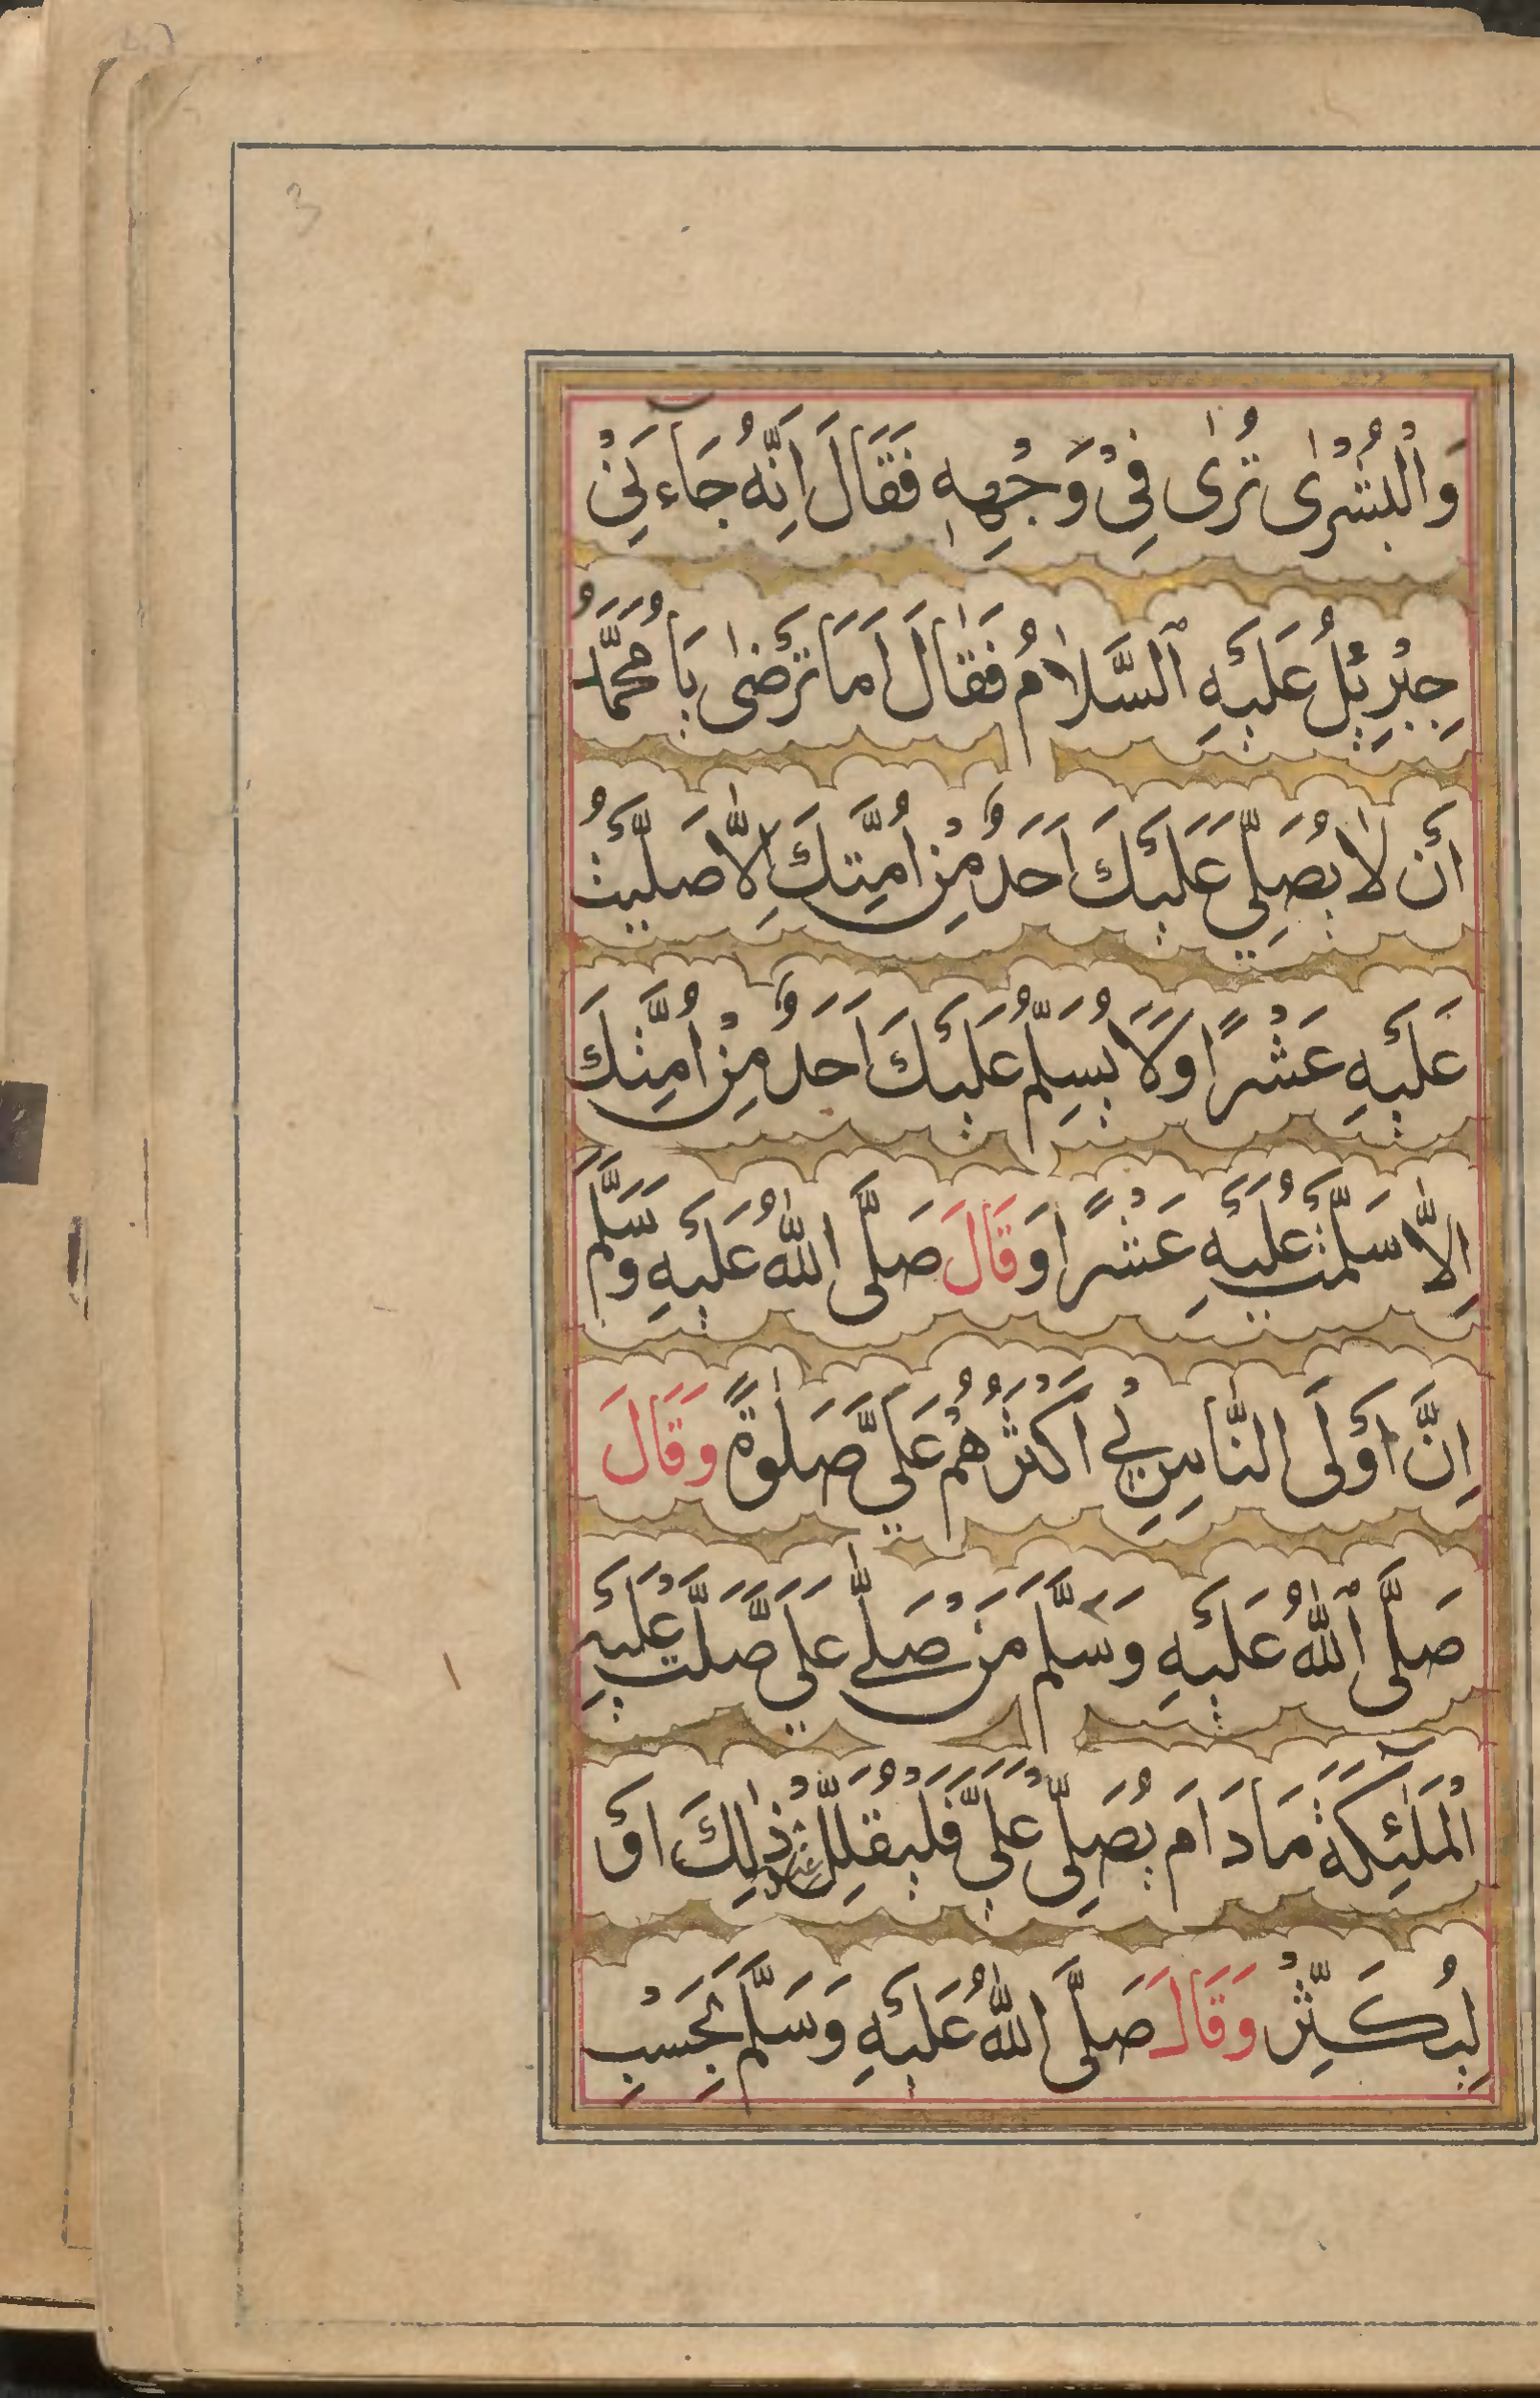 3
وَالْبُشْرٰى تُرٰى فِيْ وَجْهِهٖ فَقَالَ اِنَّهُ جَاءَنِيْ
جِبْرِيْلُ عَلَيْهِ السَّلَامُ فَقَالَ اَمَا تَرْضٰى يَا مُحَمَّدُ
اَنْ لَا يُصَلِّيَ عَلَيْكَ اَحَدٌ مِنْ اُمَّتِكَ اِلَّا صَلَّيْتُ
عَلَيْهِ عَشْرًا وَلَا يُسَلِّمُ عَلَيْكَ اَحَدٌ مِنْ اُمَّتِكَ
اِلَّا سَلَّمْتُ عَلَيْهِ عَشْرًا وَقَالَ صَلَّى اللهُ عَلَيْهِ وَسَلَّمَ
اِنَّ اَوْلَى النَّاسِ بِيْ اَكْثَرُهُمْ عَلَيَّ صَلٰوةً وَقَالَ
صَلَّى اللهُ عَلَيْهِ وَسَلَّمَ مَنْ صَلّٰى عَلَيَّ صَلَّتْ عَلَيْهِ
الْمَلٰئِكَةُ مَا دَامَ يُصَلِّيْ عَلَيَّ فَلْيُقَلِّلْ ذٰلِكَ اَوْ
لِيُكَثِّرْ وَقَالَ صَلَّى اللهُ عَلَيْهِ وَسَلَّمَ بِحَسْبِ